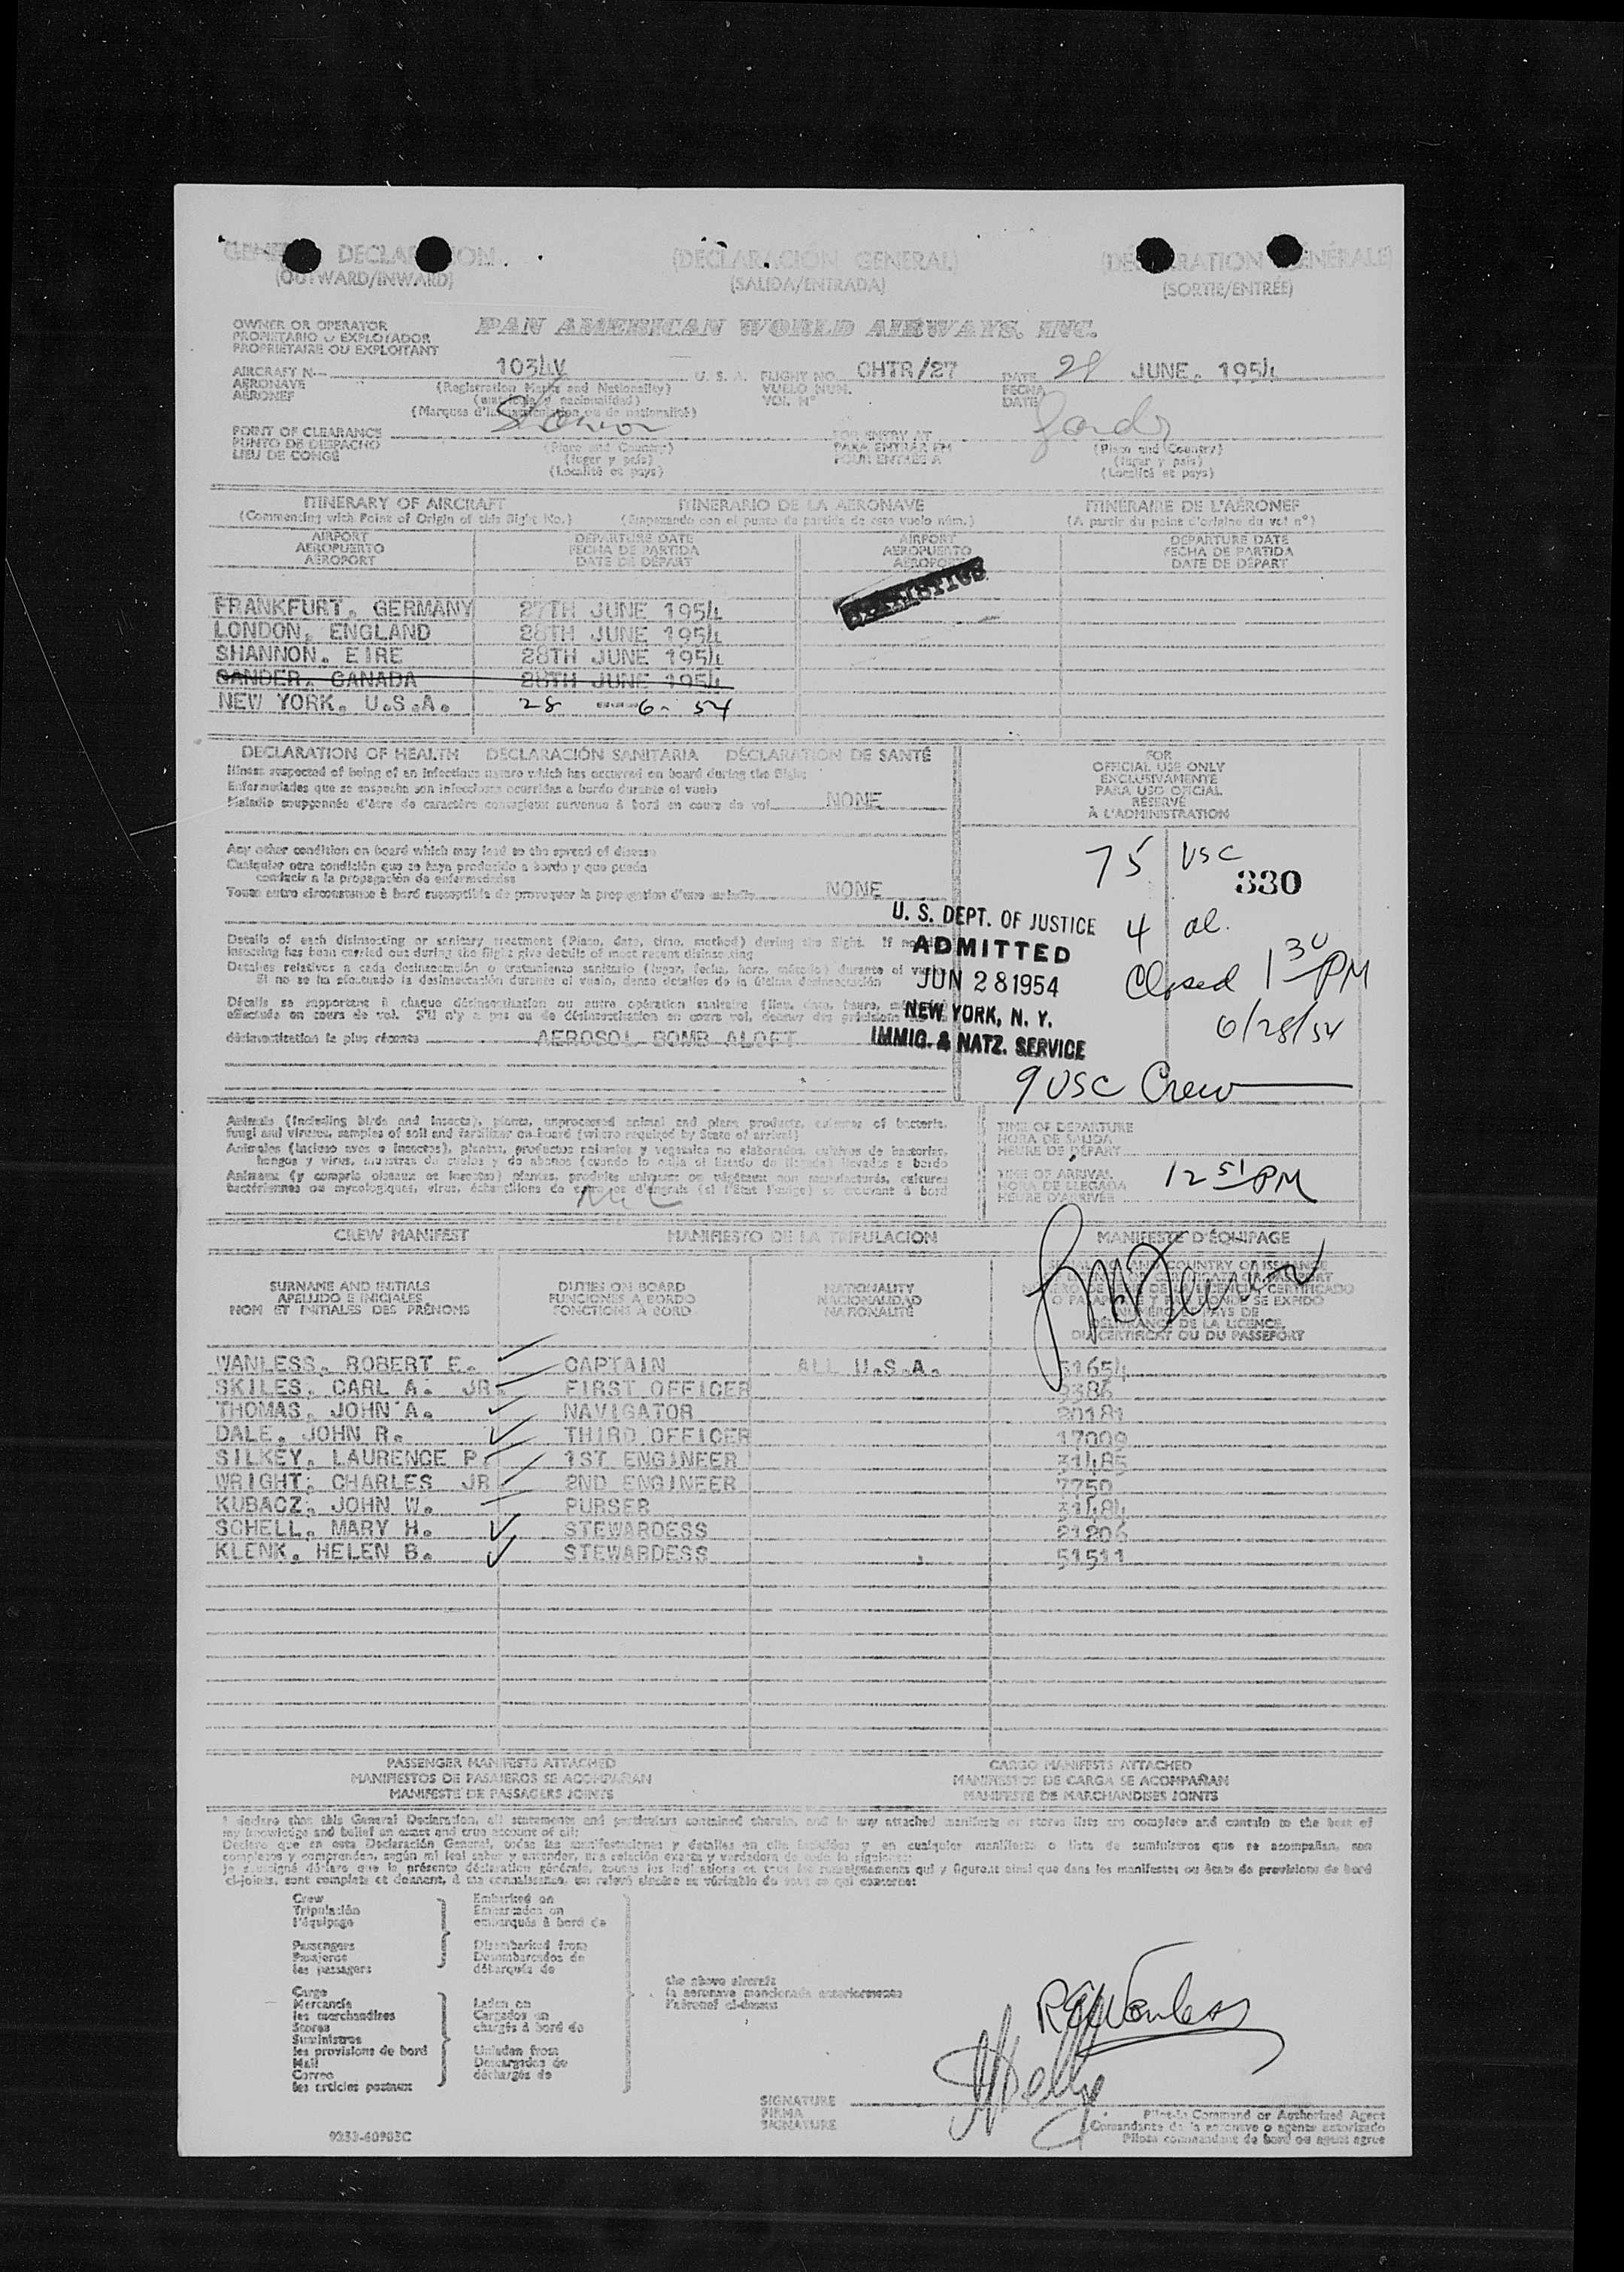 GENERAL DECLARATION (DECLARACIÓN GENERAL) (DÉCLARATION GÉNÉRALE)
(OUTWARD/INWARD) (SALIDA/ENTRADA) (SORTIE/ENTRÉE)
OWNER OR OPERATOR PAN AMERICAN WORLD AIRWAYS, INC.
PROPIETARIO O EXPLOTADOR
PROPRIÉTAIRE OU EXPLOITANT
AIRCRAFT N 1034V U. S. A. FLIGHT NO. CHTR/27 DATE 28 JUNE. 1954
AERONAVE (Registration Marks and Nationality) VUELO NUM. FECHA
AÉRONEF (matrícula y nacionalidad) VOL Nº DATE
(Marques d'immatriculation ou de nationalité)
POINT OF CLEARANCE Shannon FOR ENTRY AT Gander
PUNTO DE DESPACHO (Place and Country) PARA ENTRAR EN (Place and Country)
LIEU DE CONGÉ (lugar y país) POUR ENTRÉE À (lugar y país)
(Localité et pays) (Localité et pays)
ITINERARY OF AIRCRAFT ITINERARIO DE LA AERONAVE ITINÉRAIRE DE L'AÉRONEF
(Commencing with Point of Origin of this flight No.) (Empezando con el punto de partida de este vuelo núm.) (A partir du point d'origine du vol nº)
AIRPORT DEPARTURE DATE AIRPORT DEPARTURE DATE
AEROPUERTO FECHA DE PARTIDA AEROPUERTO FECHA DE PARTIDA
AÉROPORT DATE DE DÉPART AÉROPORT DATE DE DÉPART
STATISTICS
FRANKFURT, GERMANY 27TH JUNE 1954
LONDON, ENGLAND 28TH JUNE 1954
SHANNON. EIRE 28TH JUNE 1954
GANDER. CANADA 28TH JUNE 1954
NEW YORK. U.S.A. 28 6- 54
DECLARATION OF HEALTH DECLARACIÓN SANITARIA DÉCLARATION DE SANTÉ
Illness suspected of being of an infectious nature which has occurred on board during the flight
Enfermedades que se sospecha son infecciosas ocurridas a bordo durante el vuelo
Maladie soupçonnée d'être de caractère contagieux survenue à bord en cours de vol NONE
FOR
OFFICIAL USE ONLY
EXCLUSIVAMENTE
PARA USO OFICIAL
RÉSERVÉ
À L'ADMINISTRATION
Any other condition on board which may lead to the spread of disease
Cualquier otra condición que se haya producido a bordo y que pueda
conducir a la propagación de enfermedades
Toute autre circonstance à bord susceptible de provoquer la propagation d'une maladie NONE
75 USC
330
4 al.
Closed 1 30 PM
6/28/54
9 USC Crew
U. S. DEPT. OF JUSTICE
ADMITTED
JUN 28 1954
NEW YORK, N. Y.
IMMIG. & NATZ. SERVICE
Details of each disinsecting or sanitary treatment (Place, date, time, method) during the flight. If no
insecting has been carried out during the flight give details of most recent disinsecting
Detalles relativos a cada desinsectación o tratamiento sanitario (lugar, fecha, hora, método) durante el vuelo
Si no se ha efectuado la desinsectación durante el vuelo, dense detalles de la última desinsectación
Détails se rapportant à chaque désinsectisation ou autre opération sanitaire (lieu, date, heure,
effectuée en cours de vol. S'il n'y a pas eu de désinsectisation en cours vol, donner des précisions
désinsectisation la plus récente AEROSOL BOMB ALOFT
Animals (including birds and insects), plants, unprocessed animal and plant products, cultures of bacteria,
fungi and viruses, samples of soil and fertilizer on board (where required by State of arrival)
Animales (incluso aves o insectos), plantas, productos animales y vegetales no elaborados, cultivos de bacterias,
hongos y virus, muestras de suelos y de abonos (cuando lo exija el Estado de llegada) llevados a bordo
Animaux (y compris oiseaux et insectes) plantes, produits animaux ou végétaux non manufacturés, cultures
bactériennes ou mycologiques, virus, échantillons de terre et d'engrais (si l'État l'exige) se trouvant à bord
NIL
TIME OF DEPARTURE
HORA DE SALIDA
HEURE DE DÉPART
TIME OF ARRIVAL
HORA DE LLEGADA
HEURE D'ARRIVÉE 12 51 PM
CREW MANIFEST MANIFIESTO DE LA TRIPULACIÓN MANIFESTE D'ÉQUIPAGE
SURNAME AND INITIALS DUTIES ON BOARD NATIONALITY
APELLIDO E INICIALES FUNCIONES A BORDO NACIONALIDAD
NOM ET INITIALES DES PRÉNOMS FONCTIONS À BORD NATIONALITÉ
DÉLIVRANCE DE LA LICENCE,
DU CERTIFICAT OU DU PASSEPORT
WANLESS, ROBERT E. CAPTAIN ALL U.S.A. 51654
SKILES, CARL A. JR. FIRST OFFICER 9386
THOMAS, JOHN A. NAVIGATOR 20181
DALE, JOHN R. THIRD OFFICER 17009
SILKEY, LAURENCE P. 1ST ENGINEER 31485
WRIGHT, CHARLES JR 2ND ENGINEER 7750
KUBACZ, JOHN W. PURSER 31484
SCHELL, MARY H. STEWARDESS 21206
KLENK, HELEN B. STEWARDESS 51511
PASSENGER MANIFESTS ATTACHED CARGO MANIFESTS ATTACHED
MANIFIESTOS DE PASAJEROS SE ACOMPAÑAN MANIFIESTOS DE CARGA SE ACOMPAÑAN
MANIFESTE DE PASSAGERS JOINTS MANIFESTE DE MARCHANDISES JOINTS
I declare that this General Declaration, all statements and particulars contained therein, and in any attached manifests or stores lists are complete and contain to the best of
my knowledge and belief an exact and true account of all:
Declaro que en esta Declaración General, todas las manifestaciones y detalles en ella incluidos y en cualquier manifiesto o lista de suministros que se acompañan, son
completos y comprenden, según mi leal saber y entender, una relación exacta y verdadera de todo lo siguiente:
Je soussigné déclare que la présente déclaration générale, toutes les indications et tous les renseignements qui y figurent ainsi que dans les manifestes ou états de provisions de bord
ci-joints, sont complets et donnent, à ma connaissance, un relevé sincère et véritable de tout ce qui concerne:
Crew Embarked on
Tripulación Embarcados en
l'équipage embarqués à bord de
Passengers Disembarked from
Pasajeros Desembarcados de
les passagers débarqués de
the above aircraft
la aeronave mencionada anteriormente
l'aéronef ci-dessus
Cargo
Mercancía Laden on
les marchandises Cargados en
Stores chargés à bord de
Suministros
les provisions de bord Unladen from
Mail Descargados de
Correo déchargés de
les articles postaux
R E Wanless
SIGNATURE
FIRMA
SIGNATURE
Pilot-in Command or Authorized Agent
Comandante de la aeronave o agente autorizado
Pilote commandant de bord ou agent agréé
9353-60903C